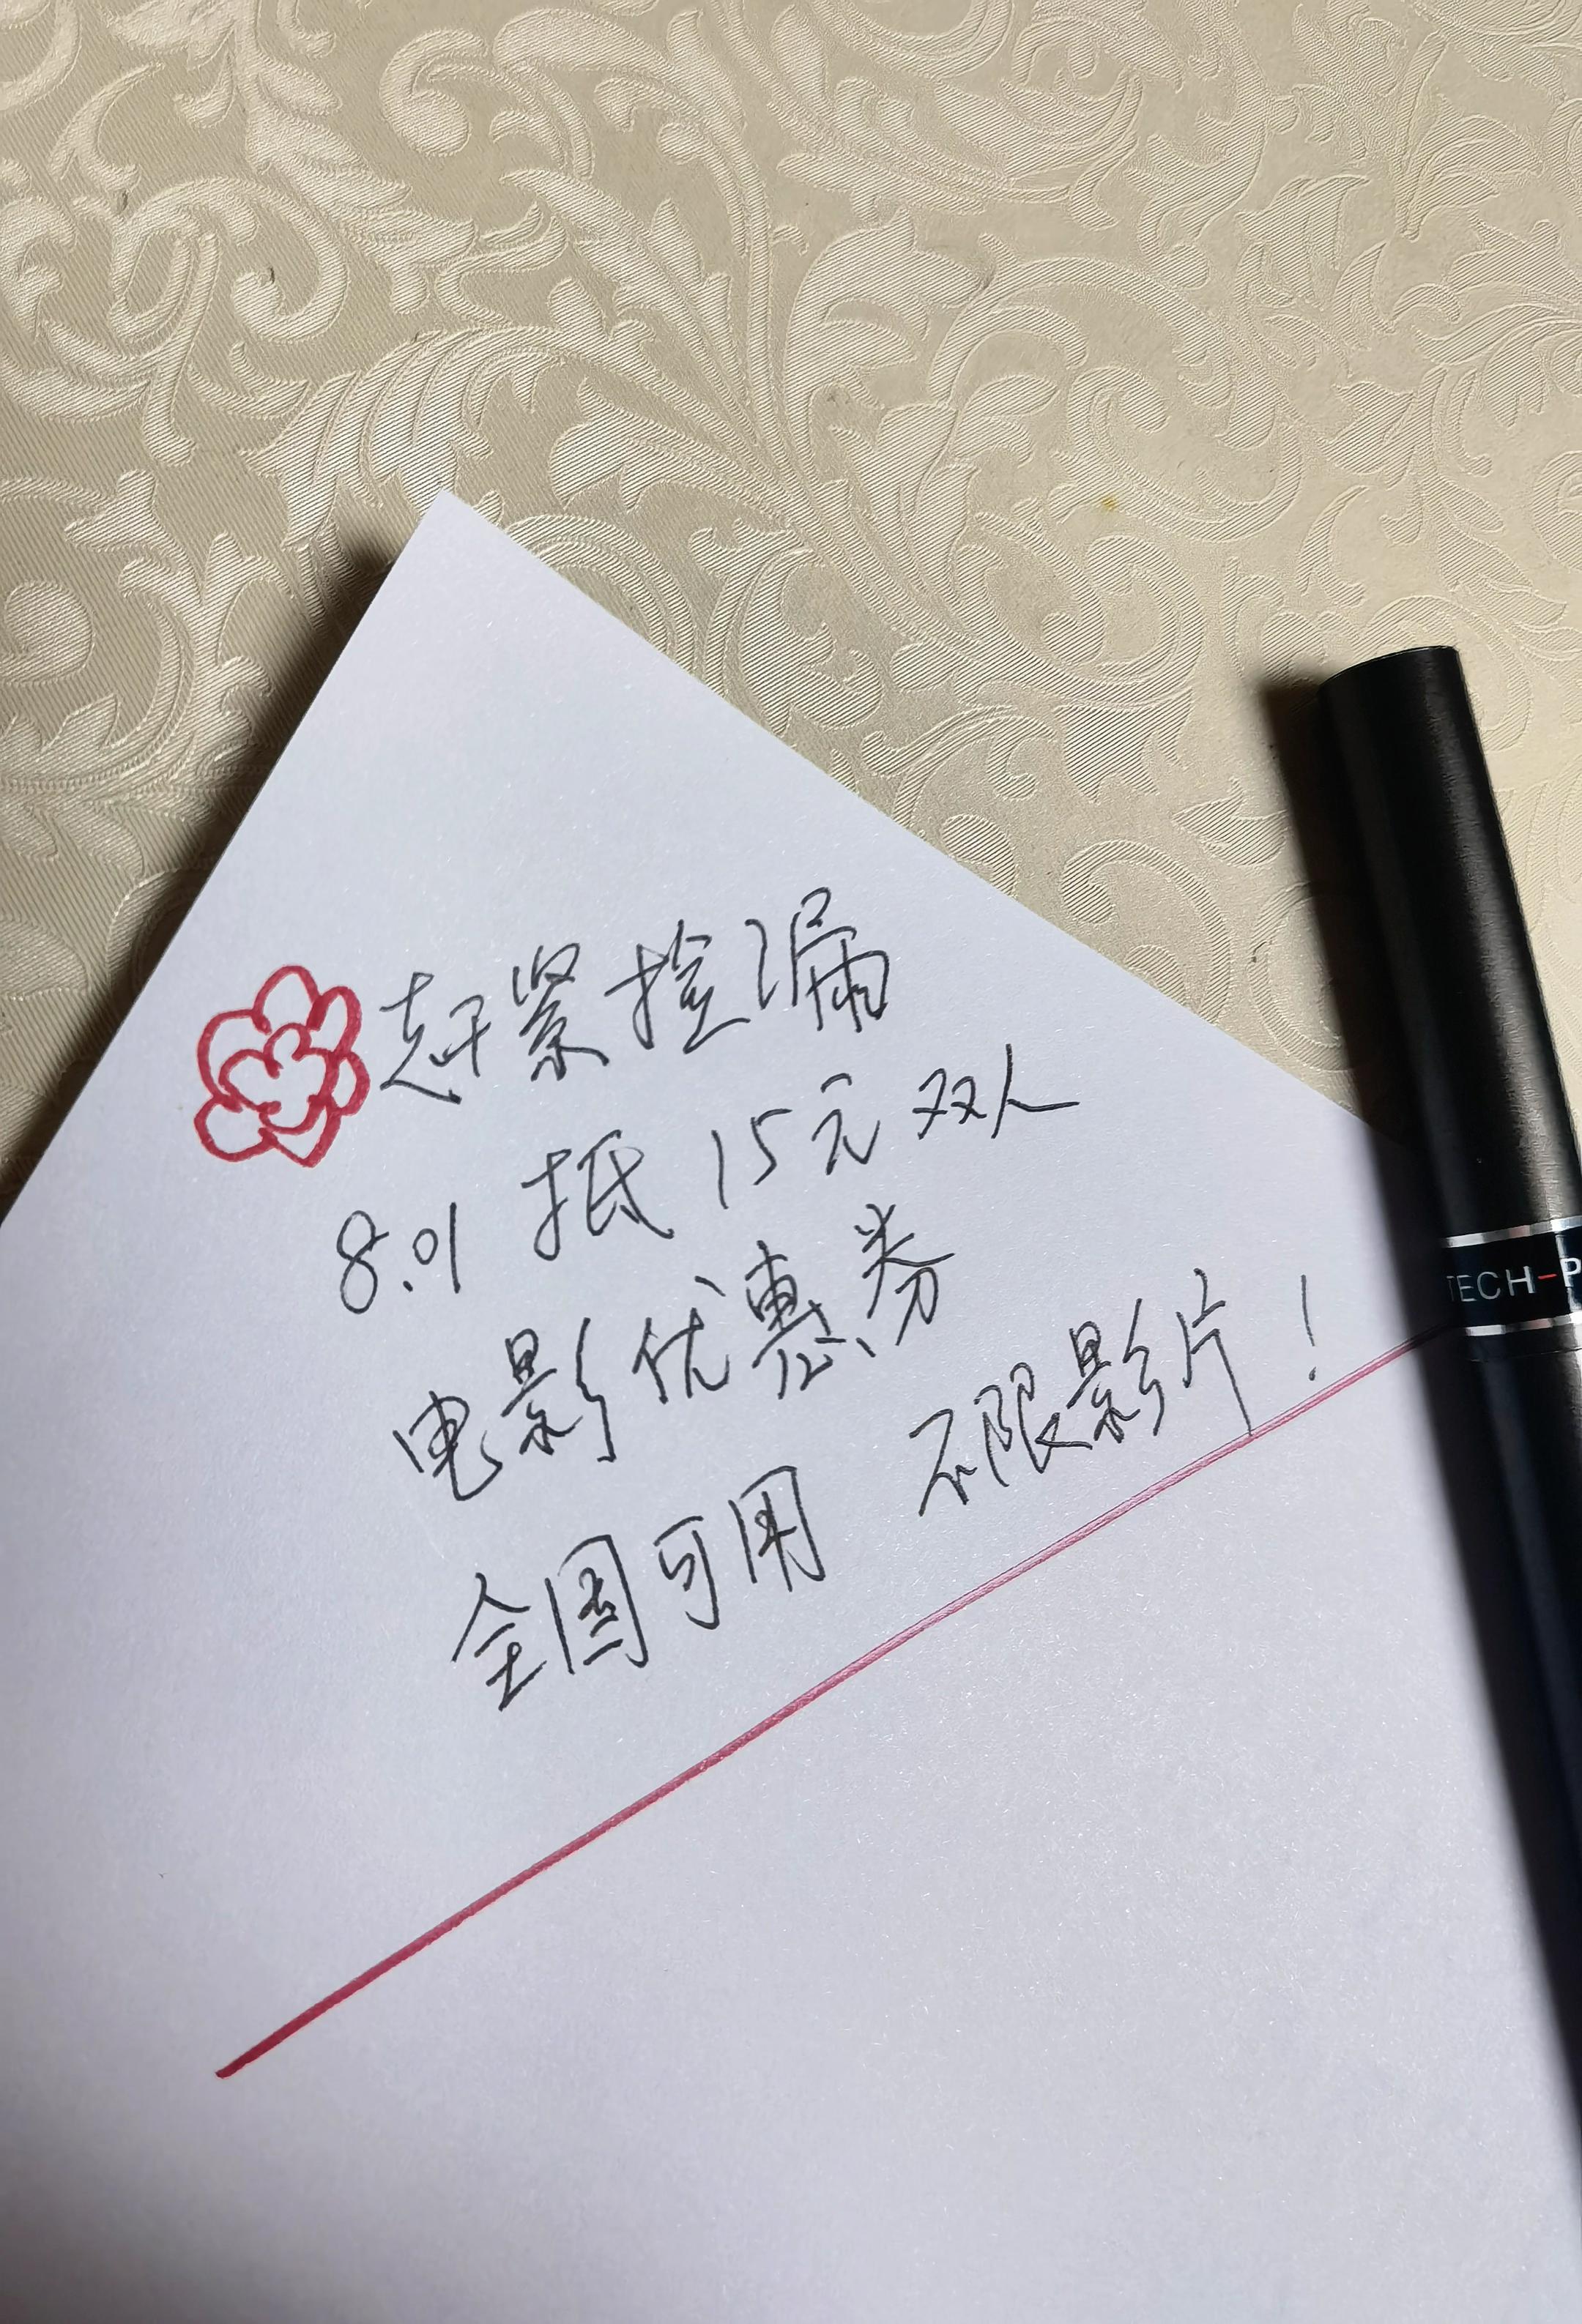 赶紧捡漏
8.01 抵 15元双人
电影优惠券
全国可用 不限影片！
TECH-P